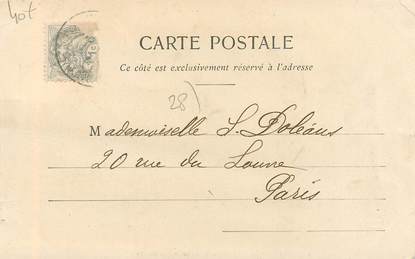 40+
CARTE POSTALE
Ce côté est exclusivement réservé à l'adresse
28)
Mademoiselle S. Doléans
20 rue du Louvre
Paris